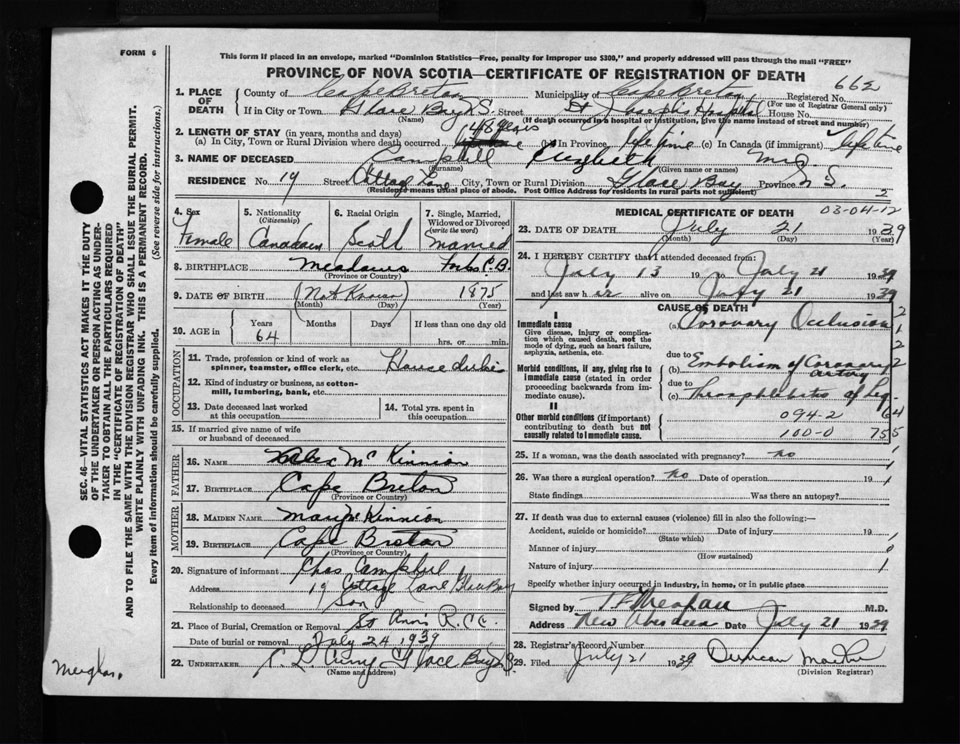 FORM 6
This form if placed in an envelope, marked "Dominion Statistics—Free, penalty for improper use $300," and properly addressed will pass through the mail "FREE"
PROVINCE OF NOVA SCOTIA—CERTIFICATE OF REGISTRATION OF DEATH
662
1. PLACE OF DEATH
County of Cape Breton Municipality of Cape Breton Registered No.
(For use of Registrar General only)
If in City or Town Glace Bay N.S. Street St Joseph's Hospital House No.
(Name) (If death occurred in a hospital or institution, give the name instead of street and number)
2. LENGTH OF STAY (in years, months and days) 48 years
(a) In City, Town or Rural Division where death occurred (b) In Province life time (c) In Canada (if immigrant) life time
3. NAME OF DECEASED Campbell Elizabeth Mrs.
(Surname) (Given name or names)
RESIDENCE No. 19 Street Cottage Lane City, Town or Rural Division Glace Bay Province N.S. 2
(Residence means usual place of abode. Post Office Address for residents in rural parts not sufficient)
4. Sex Female
5. Nationality (Citizenship) Canadian
6. Racial Origin Scott
7. Single, Married, Widowed or Divorced (write the word) married
8. BIRTHPLACE Meadows Forks C.B.
(Province or Country)
9. DATE OF BIRTH (Not Known) 1875
(Month) (Day) (Year)
10. AGE in Years Months Days If less than one day old
64 hrs. or min.
OCCUPATION
11. Trade, profession or kind of work as spinner, teamster, office clerk, etc. House duties
12. Kind of industry or business, as cotton-mill, lumbering, bank, etc.
13. Date deceased last worked at this occupation
14. Total yrs. spent in this occupation
15. If married give name of wife or husband of deceased
FATHER
16. NAME Alex McKinnion
17. BIRTHPLACE Cape Breton
(Province or Country)
MOTHER
18. MAIDEN NAME Mary McKinnion
19. BIRTHPLACE Cape Breton
(Province or Country)
20. Signature of informant Chas Campbell
Address 19 Cottage Lane Glace Bay
Relationship to deceased Son
21. Place of Burial, Cremation or Removal St Anns R.C.
Date of burial or removal July 24, 1939
22. UNDERTAKER Curry Glace Bay
(Name and address)
MEDICAL CERTIFICATE OF DEATH 03-04-12
23. DATE OF DEATH July 21 1939
(Month) (Day) (Year)
24. I HEREBY CERTIFY that I attended deceased from:
July 13 19 to July 21 1939
and last saw her alive on July 21 1939
CAUSE OF DEATH
I
Immediate cause
Give disease, injury or complication which caused death, not the mode of dying, such as heart failure, asphyxia, asthenia, etc.
(a) Coronary Occlusion
due to
Morbid conditions, if any, giving rise to immediate cause (stated in order proceeding backwards from immediate cause).
(b) Embolism of Coronary artery
due to
(c) Thrombophlebitis of Leg
II
Other morbid conditions (if important) contributing to death but not causally related to immediate cause.
094-2 64
100-0 75
25. If a woman, was the death associated with pregnancy? no
26. Was there a surgical operation? no Date of operation 19
State findings Was there an autopsy?
27. If death was due to external causes (violence) fill in also the following:—
Accident, suicide or homicide? Date of injury 19
(State which)
Manner of injury
(How sustained)
Nature of injury
Specify whether injury occurred in industry, in home, or in public place
Signed by M.D.
Address New Aberdeen Date July 21 1939
28. Registrar's Record Number
29. Filed July 21 1939 Duncan
(Division Registrar)
SEC. 46—VITAL STATISTICS ACT MAKES IT THE DUTY
OF THE UNDERTAKER OR PERSON ACTING AS UNDER-
TAKER TO OBTAIN ALL THE PARTICULARS REQUIRED
IN THE "CERTIFICATE OF REGISTRATION OF DEATH"
AND TO FILE THE SAME WITH THE DIVISION REGISTRAR WHO SHALL ISSUE THE BURIAL PERMIT.
WRITE PLAINLY WITH UNFADING INK. THIS IS A PERMANENT RECORD.
Every item of information should be carefully supplied.
(See reverse side for instructions.)